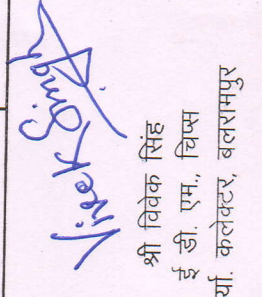 Vivek Singh
श्री विवेक सिंह
ई. डी. एम., चिप्स
र्या. कलेक्टर, बलरामपुर